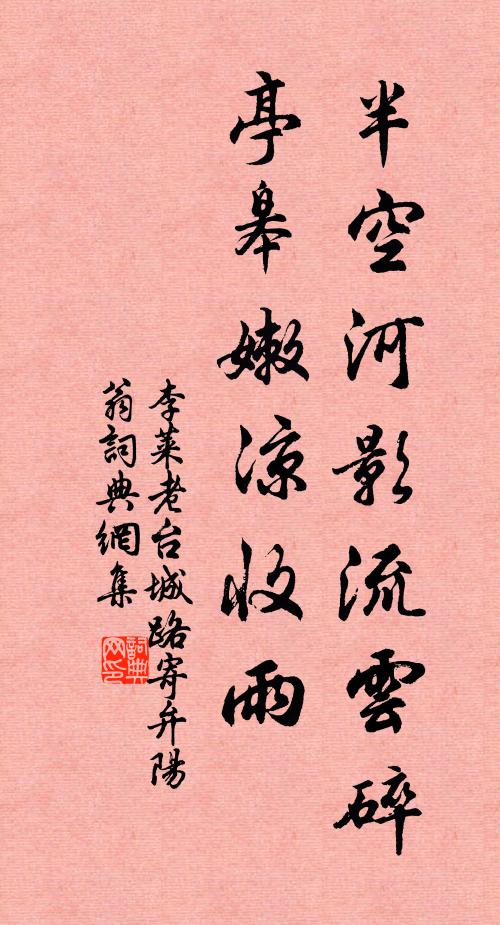 半空河影流雲碎
亭皋嫩涼收雨
李萊老台城路寄弁陽
翁詞典網集
詞典
网印